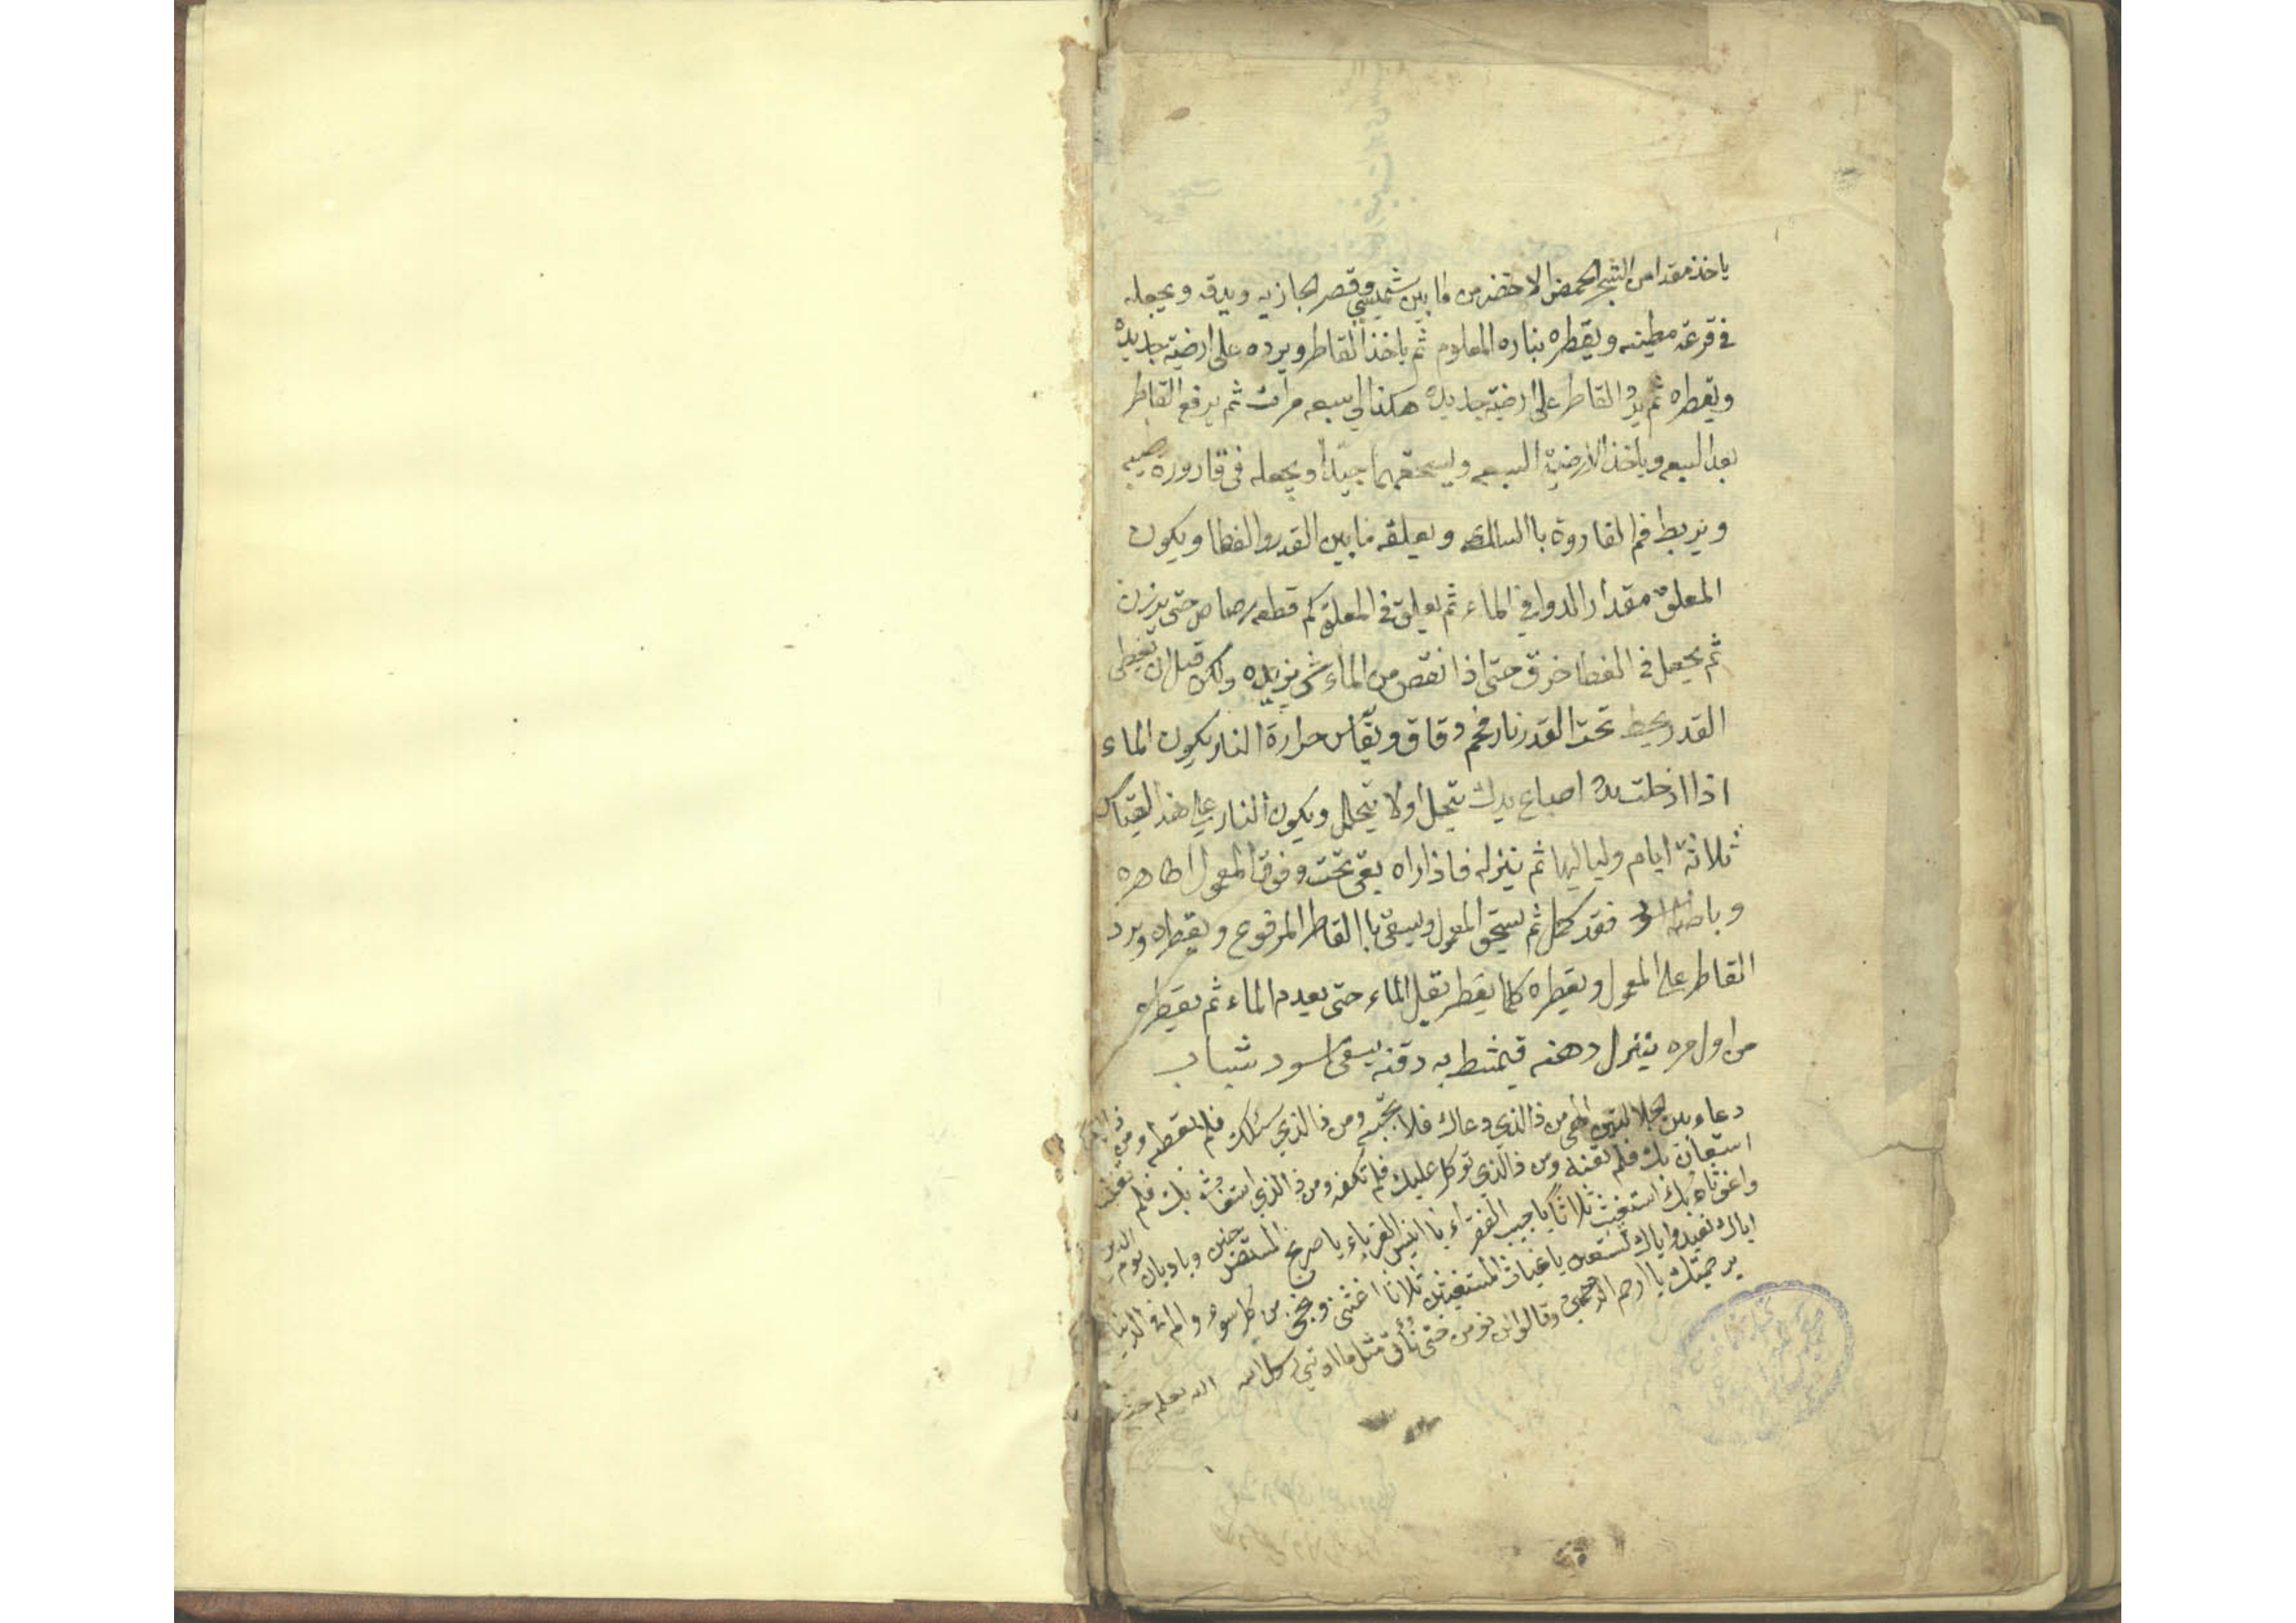 ياخذ مقدار من الشجر الحمض الاخضر من ما بين شميسي وقصر الجازيه ويدقه ويجعله
في قرعة مطينه ويقطره بناره المعلوم ثم ياخذ القاطر ويرده على ارضية جديده
ويقطره ثم يرد القاطر على ارضية جديده هكذا الى سبعه مرات ثم يرفع القاطر
بعد السبعه وياخذ الارضية السبعه ويسحقهما جيداً ويجعله في قارورة
ويربط فم القاروة باالسالك ويعلقه ما بين القدر والغطا ويكون
المعلق مقدار الدوا في الماء ثم يعلق في المعلق كم قطعه رصاص حتى يرزن
ثم يجعل في الغطا خرق حتى اذا نقص من الماء شي يزيده ولكن قبل ان تغطى
القدر يحط تحت القدر نار فحم دقاق ويقاس حرارة النار يكون الماء
اذا ادخلت اصباع يدك تتحمل اولا يتحمل ويكون النار على هذا القياس
ثلاثة ايام ولياليها ثم ينزله فاذا راه بقي تحت وفوق المعمول ظاهره
وباطنه اسود فقد كمل ثم يسحق المعمول ويسقى باالقاطر المرفوع ويقطره ويرد
القاطر على المعمول ويقطره كلما يقطر يقل الماء حتى يعدم الماء ثم يقطره
من اول مره ينزل دهنه فيمشط به دقنه يبقى اسود شباب
دعاء بين الجلالتين الهي من ذا الذي دعاك فلا تجبه ومن ذا الذي سئلك فلم تعطه ومن ذا الذي
استعان بك فلم تعنه ومن ذا الذي توكل عليك فلم تكفه ومن ذا الذي استغاث بك فلم تغثه
واغوثاه بك استغيث ثلاثا يا حبيب الفقراء يا انيس الغرباء يا صريخ المستصرخين ويا ديان يوم الدين
اياك نعبد واياك نستعين يا غياث المستغيثين ثلاثا اغثنى ونجنى من كل سوء والم في الدنيا
برحمتك يا ارحم الراحمين وقالوا لن نومن حتى نأتى مثل ما اوتي رسل الله الله يعلم حيث